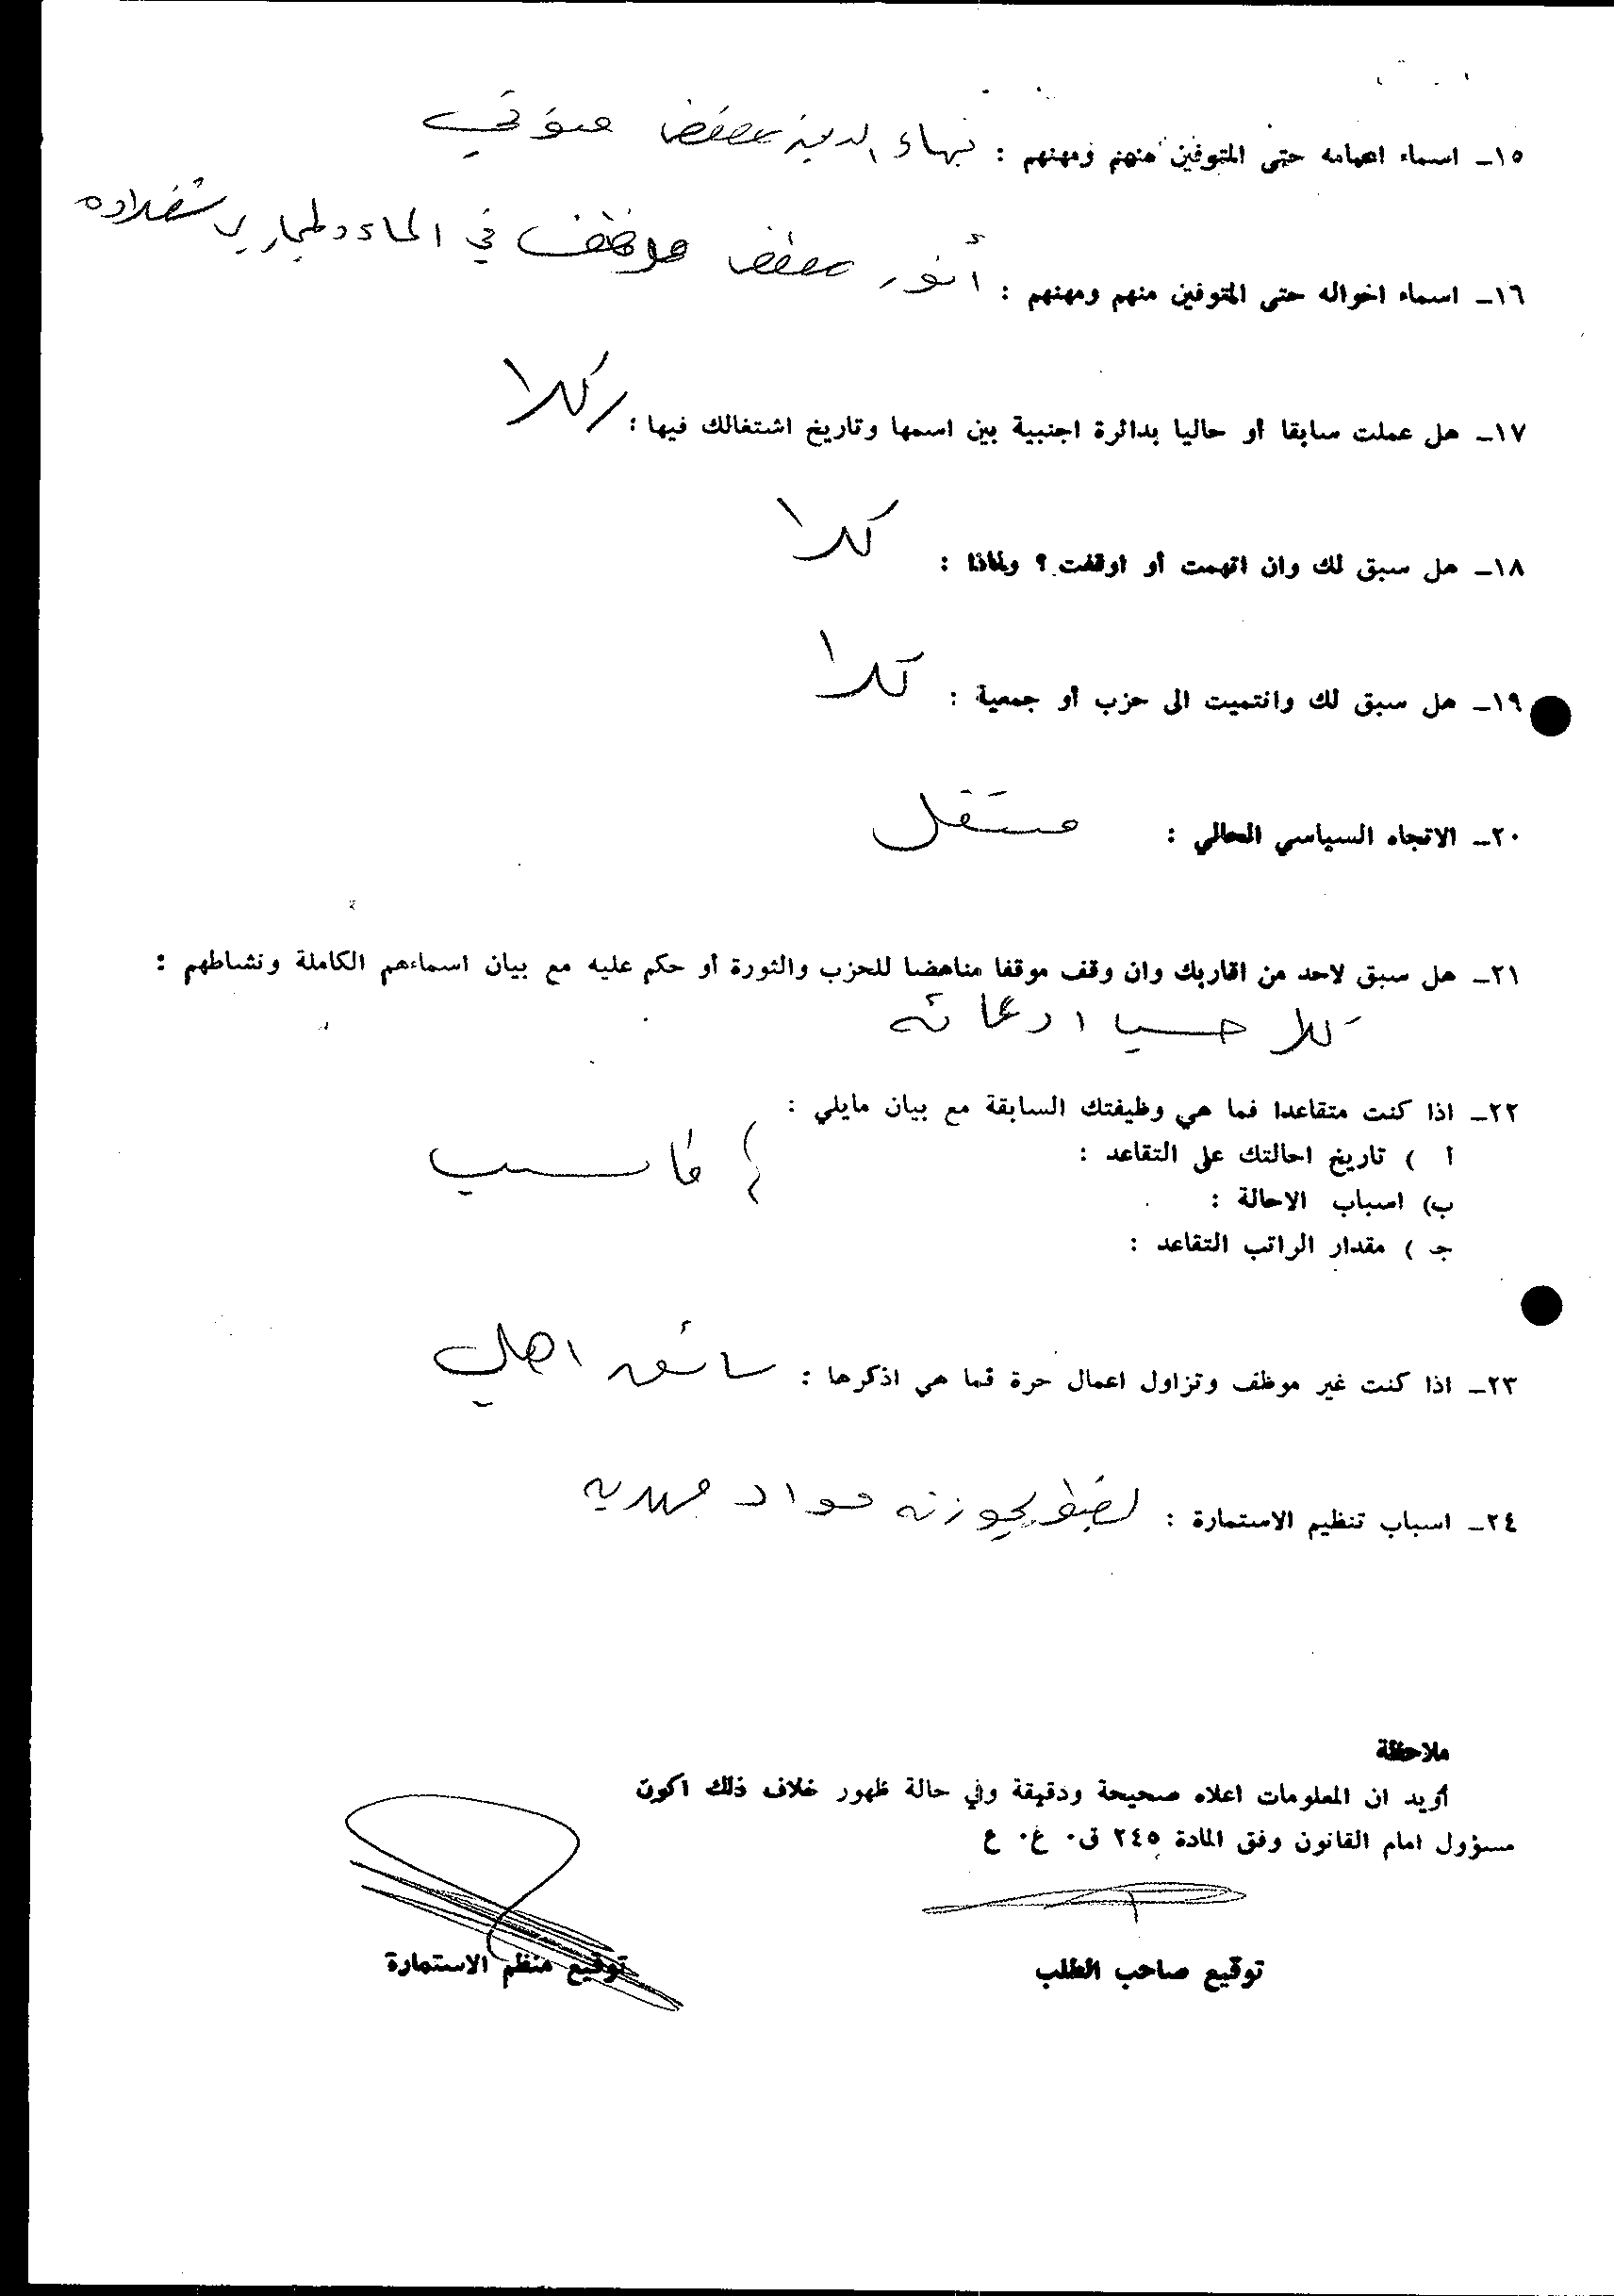 ١٥ـ اسماء اعمامه حتى المتوفين منهم ومهنهم : بهاء الدين متوفي
١٦ـ اسماء اخواله حتى المتوفين منهم ومهنهم : أنور موظف في الماء والمجاري شقلاوه
١٧ـ هل عملت سابقا أو حاليا بدائرة اجنبية بين اسمها وتاريخ اشتغالك فيها : كلا
١٨ـ هل سبق لك وان اتهمت أو اوقفت ؟ ولماذا : كلا
١٩ـ هل سبق لك وانتميت الى حزب أو جمعية : كلا
٢٠ـ الاتجاه السياسي الحالي : مستقل
٢١ـ هل سبق لاحد من اقاربك وان وقف موقفا مناهضا للحزب والثورة أو حكم عليه مع بيان اسماءهم الكاملة ونشاطهم :
كلا حسب ادعائه
٢٢ـ اذا كنت متقاعدا فما هي وظيفتك السابقة مع بيان مايلي :
أ ) تاريخ احالتك على التقاعد :
ب) اسباب الاحالة :
جـ ) مقدار الراتب التقاعد :
٢٣ـ اذا كنت غير موظف وتزاول اعمال حرة فما هي اذكرها : سائق اهلي
٢٤ـ اسباب تنظيم الاستمارة : لضبط بحوزته مواد مهربه
ملاحظة
أويد ان المعلومات اعلاه صحيحة ودقيقة وفي حالة ظهور خلاف ذلك اكون
مسؤول امام القانون وفق المادة ٢٤٥ ق٠ غ٠ ع
توقيع صاحب الطلب
توقيع منظم الاستمارة